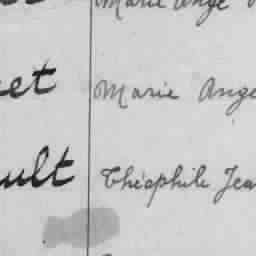 Marie Ange
et Marie Ange
ult Théophile Jea